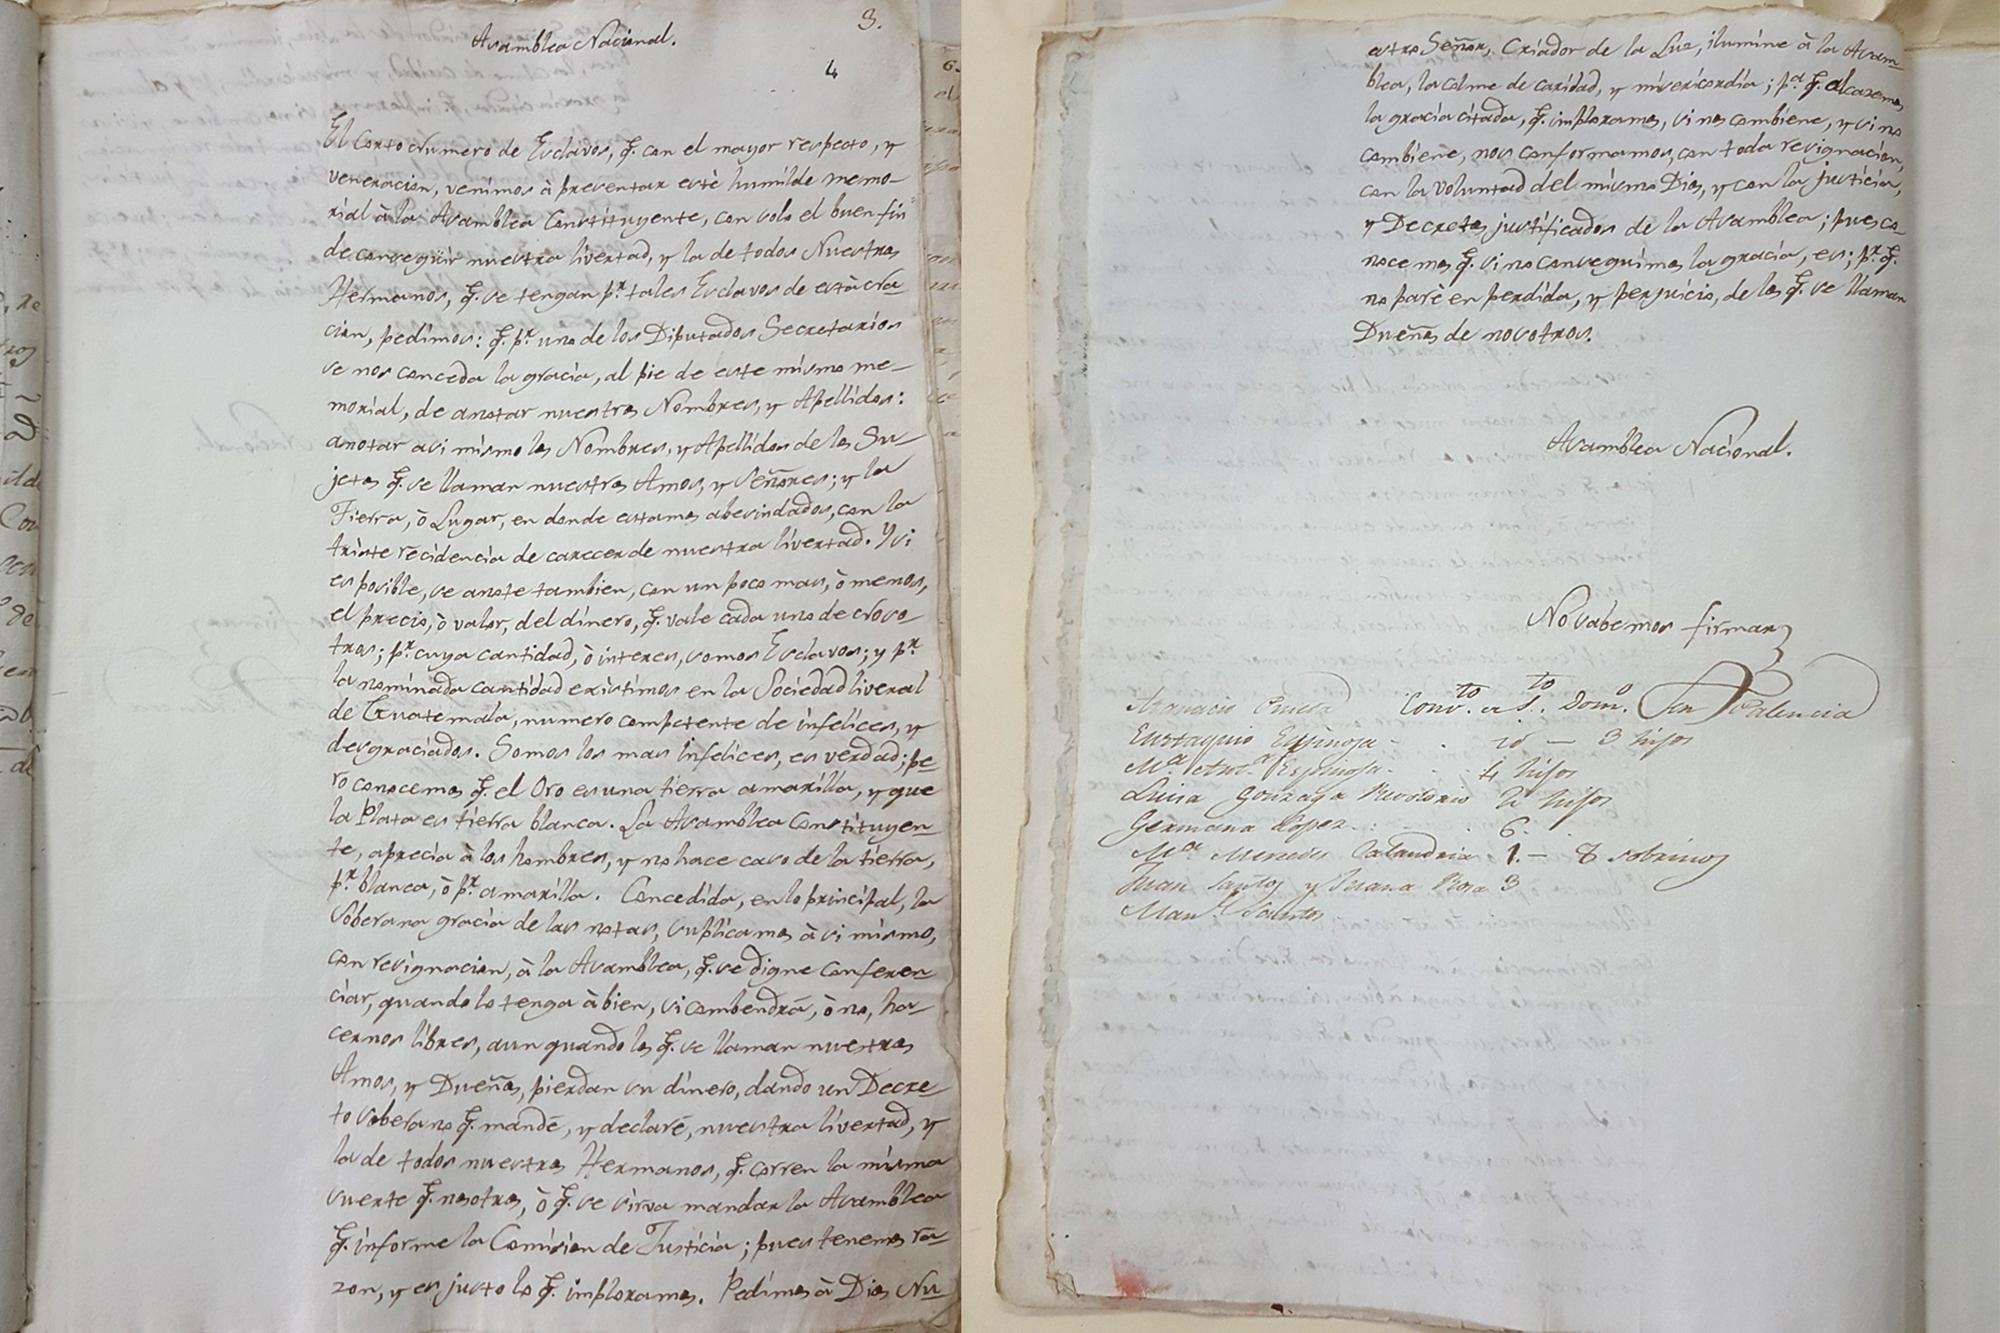 3.
Asamblea Nacional.
4
El Corto Numero de Esclavos, q.e con el mayor respecto, y
veneracion, venimos à presentar estè humilde memo-
rial à la Asamblea Constituyente, con solo el buen fin
de conseguir nuestra livertad, y la de todos Nuestros
Hermanos, q.e se tengan p.r tales Esclavos de està Na-
cion, pedimos: q.e p.r uno de los Diputados Secretarios
se nos conceda la gracia, al pie de este mismo me-
morial, de anotar nuestros Nombres, y Apellidos:
anotar asi mismo los Nombres, y Apellidos de los Su-
jetos q.e se llaman nuestros Amos, y Señores; y la
Tierra, ò Lugar, en donde estamos abecindados, con la
triste recidencia de carecer de nuestra livertad. Y si
es posible, se anote tambien, con un poco mas, ò menos,
el precio, ò valor, del dinero, q.e vale cada uno de Noso-
tros; p.r cuya cantidad, ò interes, somos Esclavos; y p.r
la nominada cantidad existimos en la Sociedad liveral
de Guatemala, numero competente de infelices, y
desgraciados. Somos los mas infelices, es verdad; pe-
ro conocemos q.e el Oro es una tierra amarilla, y que
la Plata es tierra blanca. La Asamblea Constituyen-
te, aprecia à los hombres, y no hace caso de la tierra,
p.r blanca, ò p.r amarilla. Concedida, en lo principal, la
soberana gracia de las notas, suplicamos à si mismo,
con resignacion, à la Asamblea, q.e se digne conferen-
ciar, quando lo tenga à bien, si combendrá, ò no, ha-
cernos libres, aun quando los q.e se llaman nuestros
Amos, y Dueños, pierdan su dinero, dando un Decre-
to soberano q.e mande, y declaré, nuestra livertad, y
la de todos nuestros Hermanos, q.e corren la misma
suerte q.e nosotros, ò q.e se sirva mandar la Asamblea
q.e informe la Comision de Justicia; pues tenemos ra-
zon, y es justo lo q.e imploramos. Pedimos à Dios Nu-
estro Señor, Criador de la Luz, ilumine à la Asam-
blea, la colme de caridad, y misericordia; p.a q.e alcazemos
la gracia citada, q.e imploramos, si nos combiene, y si no
combiene, nos conformamos, con toda resignacion,
con la voluntad del mismo Dios, y con la justicia,
y Decretos justificados de la Asamblea; pues co-
nocemos q.e si no conseguimos la gracia, es; p.r q.e
no parè en perdida, y perjuicio, de los q.e se llaman
Dueños de nosotros.
Asamblea Nacional.
No sabemos firmar
Atanacio Conv.to S.to Dom.o En Palencia
Eustaquio Espinosa - . 3 hijos
M.a Ant.a Espinosa - . 4 hijos
Luisa Gonzaga Revolorio 2 hijos
Germana Lopez . . 6.
M.a Mercedes Calandria 1. - 8 sobrinos
Juan Santos y Juana Rosa 3
Man.l Santos